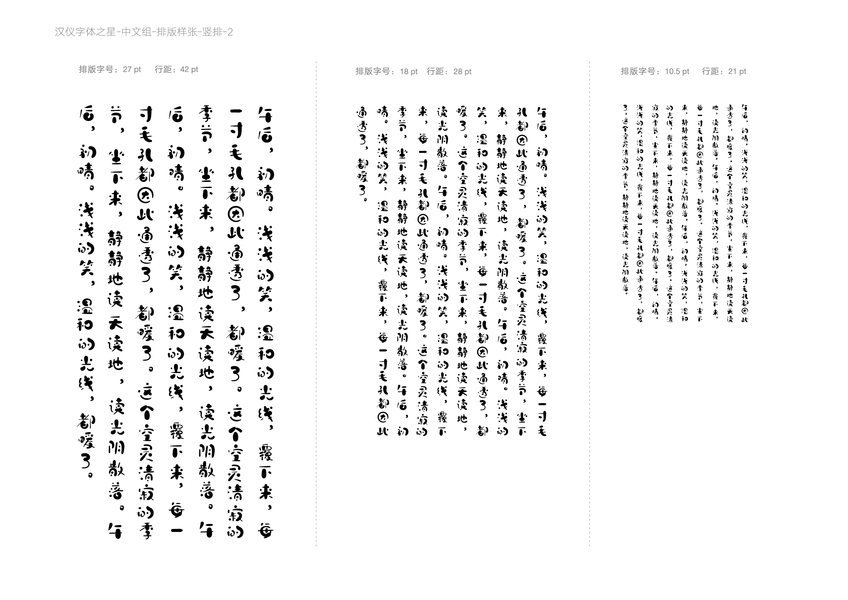 汉仪字体之星-中文组-排版样张-竖排-2
排版字号：27 pt 行距：42 pt
午后，初晴。浅浅的笑，温和的光线，覆下来，每
一寸毛孔都因此通透了，都暖了。这个空灵清寂的
季节，坐下来，静静地读天读地，读光阴散落。午
后，初晴。浅浅的笑，温和的光线，覆下来，每一
寸毛孔都因此通透了，都暖了。这个空灵清寂的季
节，坐下来，静静地读天读地，读光阴散落。午
后，初晴。浅浅的笑，温和的光线，都暖了。
排版字号：18 pt 行距：28 pt
午后，初晴。浅浅的笑，温和的光线，覆下来，每一寸毛
孔都因此通透了，都暖了。这个空灵清寂的季节，坐下
来，静静地读天读地，读光阴散落。午后，初晴。浅浅的
笑，温和的光线，覆下来，每一寸毛孔都因此通透了，都
暖了。这个空灵清寂的季节，坐下来，静静地读天读地，
读光阴散落。午后，初晴。浅浅的笑，温和的光线，覆下
来，每一寸毛孔都因此通透了，都暖了。这个空灵清寂的
季节，坐下来，静静地读天读地，读光阴散落。午后，初
晴。浅浅的笑，温和的光线，覆下来，每一寸毛孔都因此
通透了，都暖了。
排版字号：10.5 pt 行距：21 pt
午后，初晴。浅浅的笑，温和的光线，覆下来，每一寸毛孔都因此
通透了，都暖了。这个空灵清寂的季节，坐下来，静静地读天读
地，读光阴散落。午后，初晴。浅浅的笑，温和的光线，覆下来，
每一寸毛孔都因此通透了，都暖了。这个空灵清寂的季节，坐下
来，静静地读天读地，读光阴散落。午后，初晴。浅浅的笑，温和
的光线，覆下来，每一寸毛孔都因此通透了，都暖了。这个空灵清
寂的季节，坐下来，静静地读天读地，读光阴散落。午后，初晴。
浅浅的笑，温和的光线，覆下来，每一寸毛孔都因此通透了，都暖
了，这个空灵清寂的季节，静静地读天读地，读光阴散落。